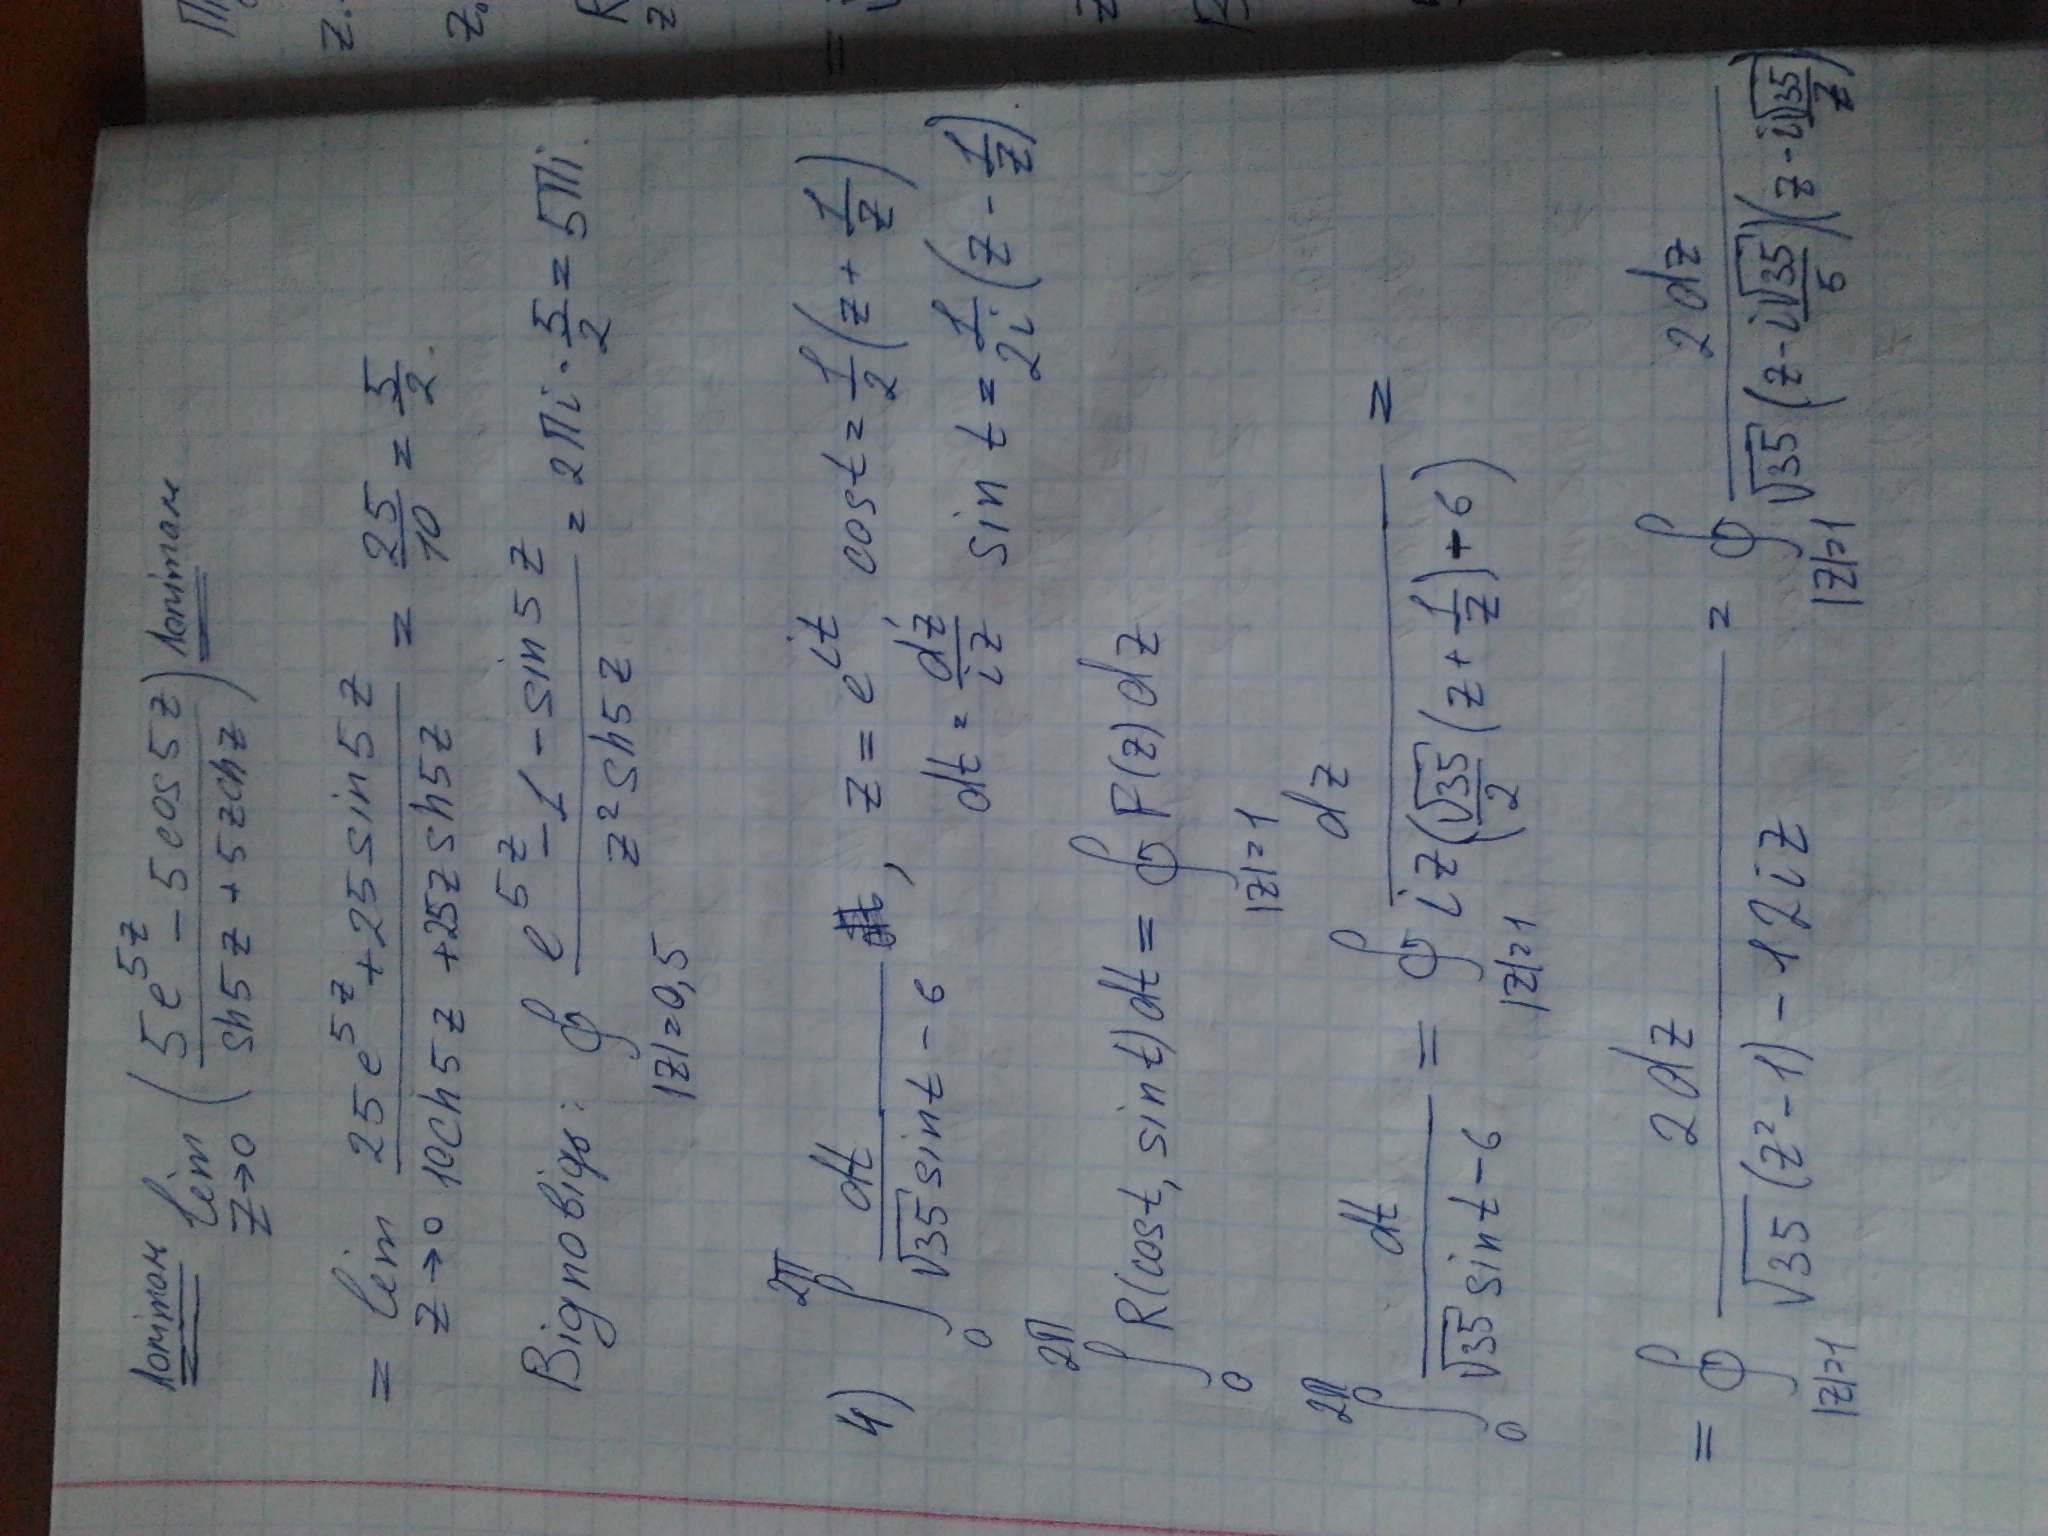 Лопіталь lim z→0 ( (5e^{5z} - 5cos5z) / (sh5z + 5zchz) ) Лопіталь
= lim z→0 (25e^{5z} + 25sin5z) / (10ch5z + 25zsh5z) = 25/10 = 5/2.
Відповідь: ∮_{|z|=0,5} (e^{5z} - 1 - sin5z) / (z² sh5z) = 2πi · 5/2 = 5πi.
4) ∫_0^{2π} dt / (√35 sint - 6), z = e^{it}, cost = 1/2 (z + 1/z)
dt = dz/iz sin t = 1/2i (z - 1/z).
∫_0^{2π} R(cost, sint)dt = ∮_{|z|=1} F(z)dz
∫_0^{2π} dt / (√35 sint - 6) = ∮_{|z|=1} dz / (iz(√35/2 (z + 1/z) - 6)) =
= ∮_{|z|=1} 2dz / (√35 (z² - 1) - 12iz) = ∮_{|z|=1} 2dz / (√35 (z - i√35/5)(z - i√35/7)